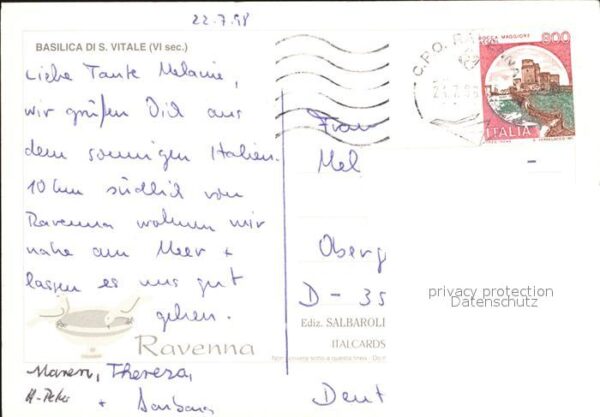 22.7.98
BASILICA DI S. VITALE (VI sec.)
Liebe Tante Melanie,
wir grüßen Dich aus
dem sonnigen Italien.
10 km südlich von
Ravenna wohnen wir
nahe am Meer +
lassen es uns gut
gehen.
Ravenna
Maren, Theresa,
H-Peter + Barbara
C.P.O. R
ROCCA MAGGIORE
800
ITALIA
Frau
Mel
Oberg
D - 35
privacy protection
Datenschutz
Ediz. SALBAROLI
ITALCARDS
Non scrivere sotto a questa linea
Deut